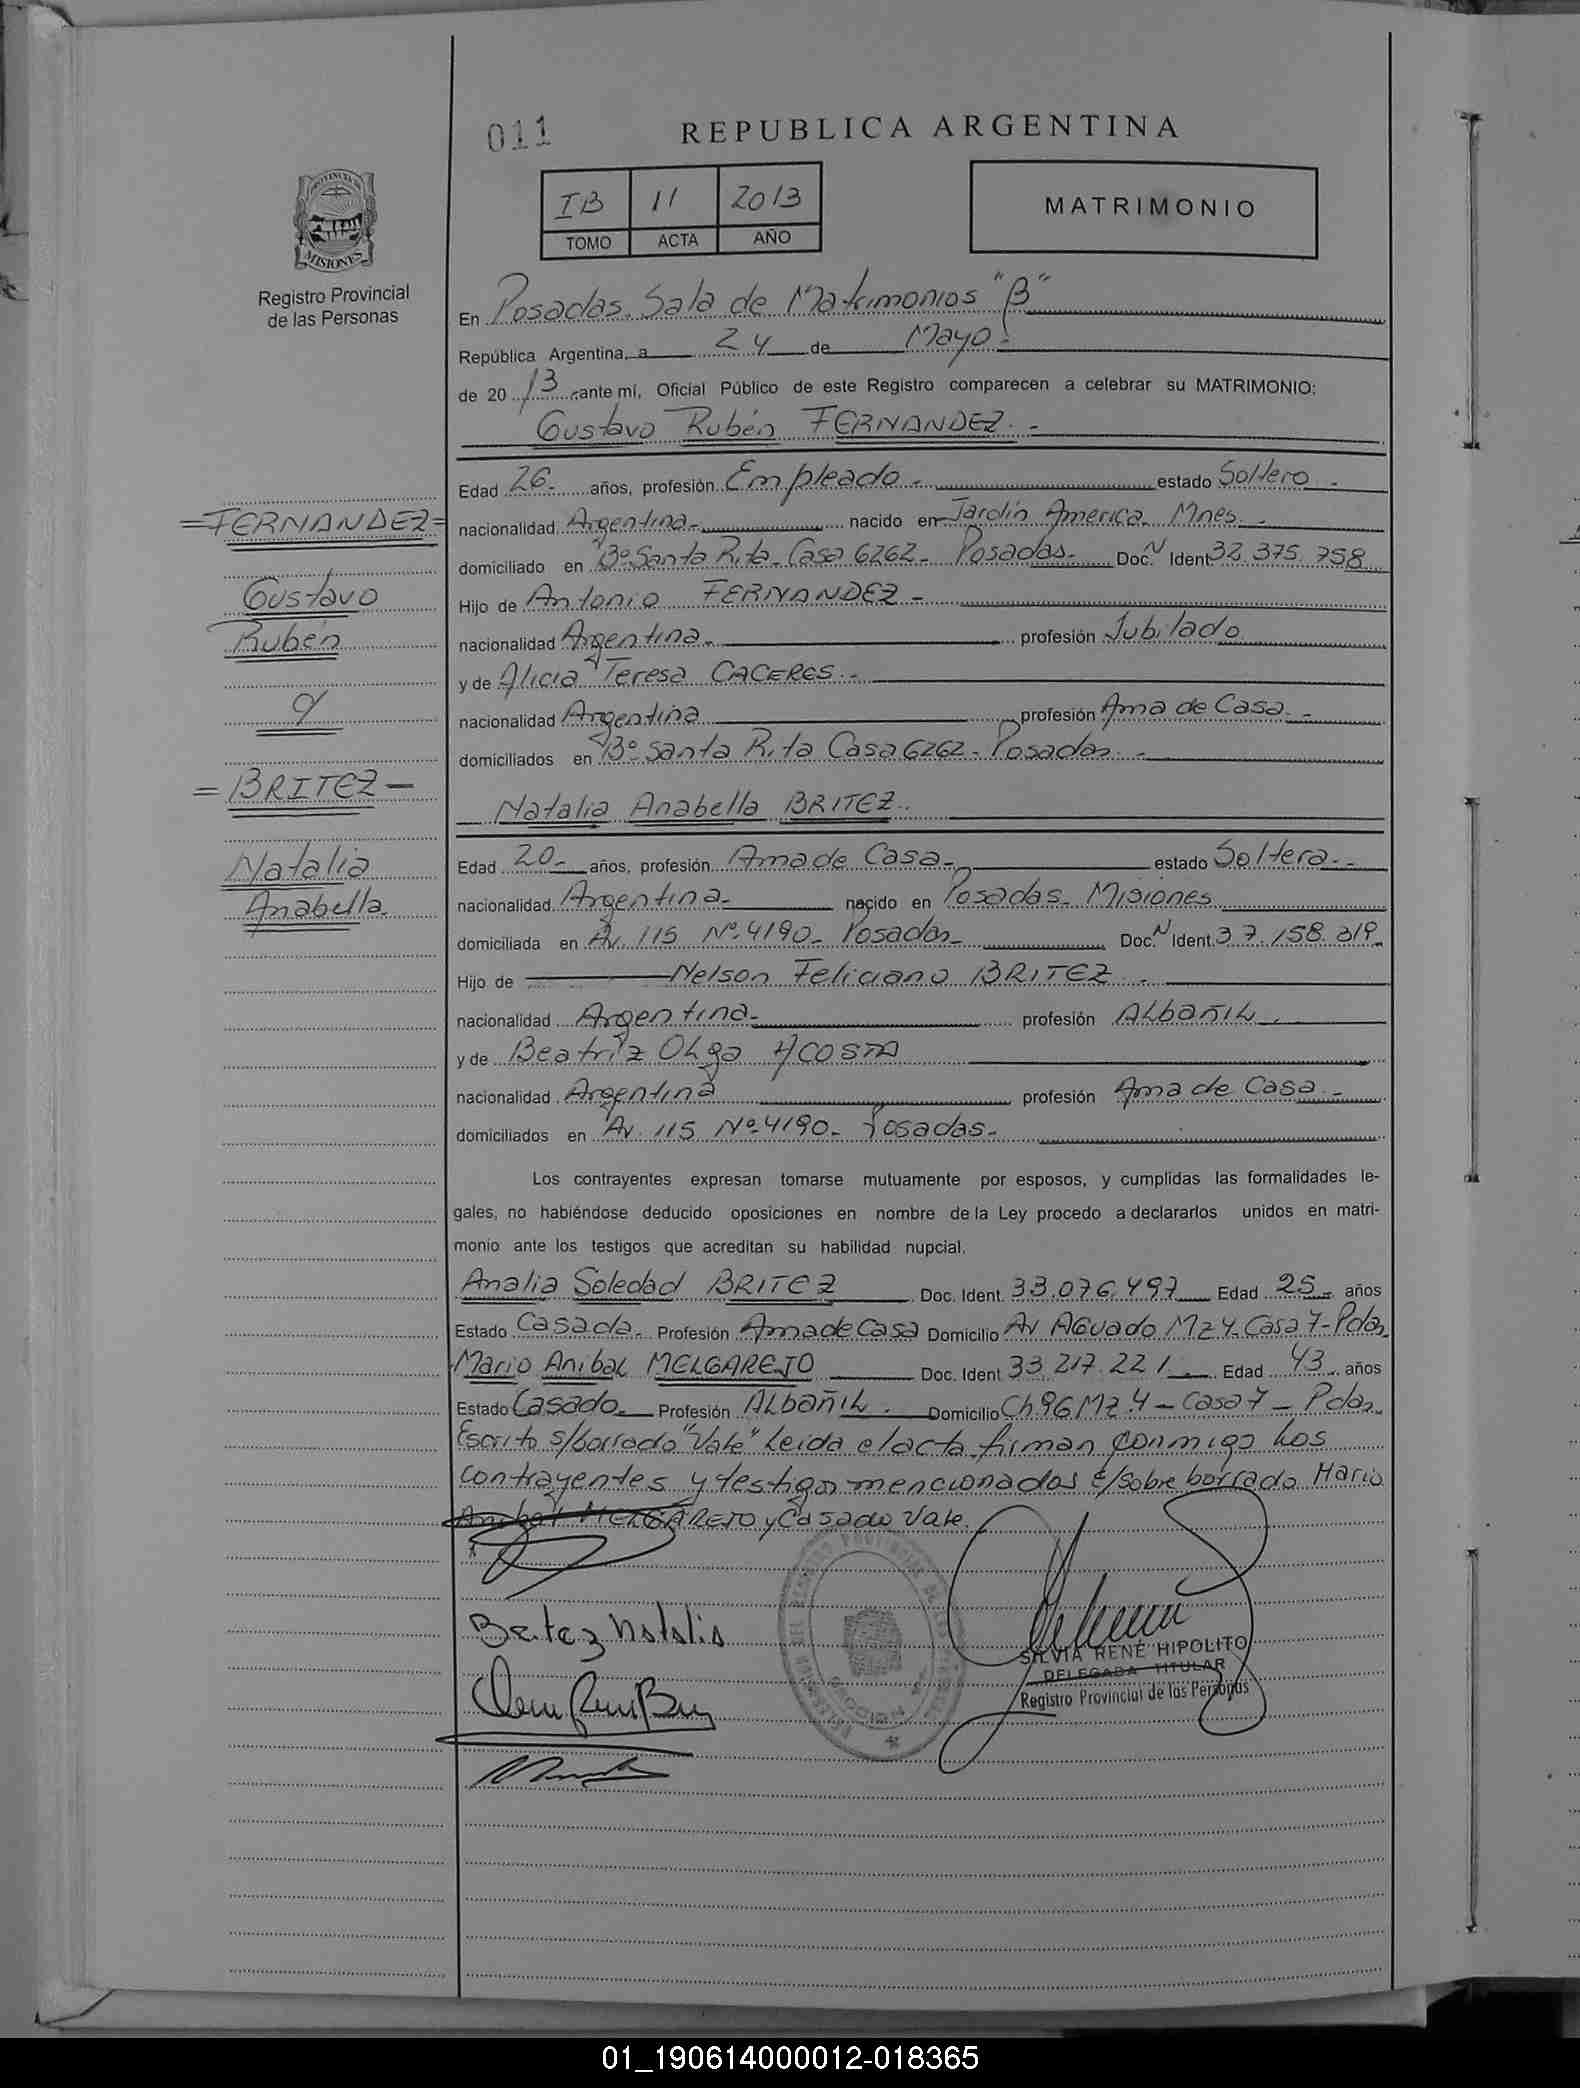 011
REPUBLICA ARGENTINA
IB 11 2013
TOMO ACTA AÑO
MATRIMONIO
PROVINCIA DE
MISIONES
Registro Provincial
de las Personas
En Posadas. Sala de Matrimonios "B"
República Argentina, a 24 de Mayo.-
de 20 13 ante mí, Oficial Público de este Registro comparecen a celebrar su MATRIMONIO:
Gustavo Rubén FERNANDEZ.-
Edad 26.- años, profesión Empleado.- estado Soltero.-
nacionalidad Argentina.- nacido en Jardín America. Mnes.-
domiciliado en Bº Santa Rita. Casa 6262.- Posadas.- Doc. N Ident 32.375.758
Hijo de Antonio FERNANDEZ.-
nacionalidad Argentina.- profesión Jubilado
y de Alicia Teresa CACERES.-
nacionalidad Argentina profesión Ama de Casa.-
domiciliados en Bº Santa Rita Casa 6262.- Posadas.-
Natalia Anabella BRITEZ.
Edad 20.- años, profesión Ama de Casa.- estado Soltera.-
nacionalidad Argentina.- nacido en Posadas. Misiones
domiciliada en Av. 115 Nº 4190.- Posadas.- Doc. N Ident. 37.158.319.
Hijo de Nelson Feliciano BRITEZ.-
nacionalidad Argentina.- profesión ALbañiL.-
y de Beatriz OLga ACOSTA
nacionalidad Argentina profesión Ama de Casa.-
domiciliados en Av. 115 Nº 4190.- Posadas.-
=FERNANDEZ=
Gustavo
Rubén
y
=BRITEZ=
Natalia
Anabella.
Los contrayentes expresan tomarse mutuamente por esposos, y cumplidas las formalidades le-
gales, no habiéndose deducido oposiciones en nombre de la Ley procedo a declararlos unidos en matri-
monio ante los testigos que acreditan su habilidad nupcial.
Analia Soledad BRITEZ Doc. Ident. 33.076.497 Edad 25 años
Estado Casada. Profesión Ama de Casa Domicilio Av AGuado Mz 4. Casa 7-Pdas.
Mario Anibal MELGAREJO Doc. Ident 33.217.221 Edad 43 años
Estado Casado. Profesión ALbañiL. Domicilio Ch 96 Mz 4 - Casa 7 - Pdas.
Escrito s/borrado "Vale" Leida el acta firman conmigo Los
contrayentes y testigos mencionados E/sobre borrado Mario
Anibal MELGAREJO y Casado Vale.
Britez Natalia
SILVIA RENÉ HIPOLITO
DELEGADA TITULAR
Registro Provincial de las Personas
01_190614000012-018365